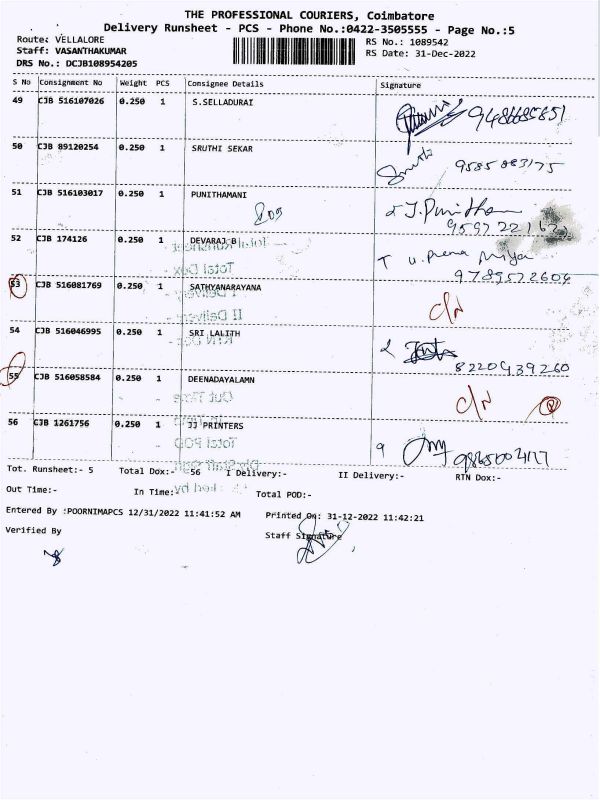 THE PROFESSIONAL COURIERS, Coimbatore
Delivery Runsheet - PCS - Phone No.:0422-3505555 - Page No.:5
Route: VELLALORE
RS No.: 1089542
Staff: VASANTHAKUMAR
RS Date: 31-Dec-2022
DRS No.: DCJB108954205
S No Consignment No Weight PCS Consignee Details Signature
49 CJB 516107026 0.250 1 S.SELLADURAI
50 CJB 89120254 0.250 1 SRUTHI SEKAR Sruthi 9585083175
51 CJB 516103017 0.250 1 PUNITHAMANI J.Punitham
52 CJB 174126 0.250 1 DEVARAJ B T u.Prema Priya
9789572606
53 CJB 516081769 0.250 1 SATHYANARAYANA C/N
54 CJB 516046995 0.250 1 SRI LALITH
8220939260
55 CJB 516058584 0.250 1 DEENADAYALAMN C/N
56 CJB 1261756 0.250 1 JJ PRINTERS
Tot. Runsheet:- 5 Total Dox:- 56 I Delivery:- II Delivery:- RTN Dox:-
Out Time:- In Time:- Total POD:-
Entered By :POORNIMAPCS 12/31/2022 11:41:52 AM Printed On: 31-12-2022 11:42:21
Verified By Staff Signature